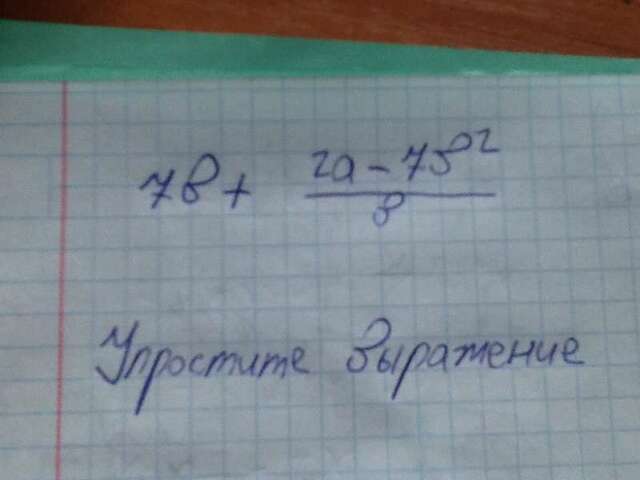 7в + \frac{2а - 7в^2}{в}
Упростите выражение